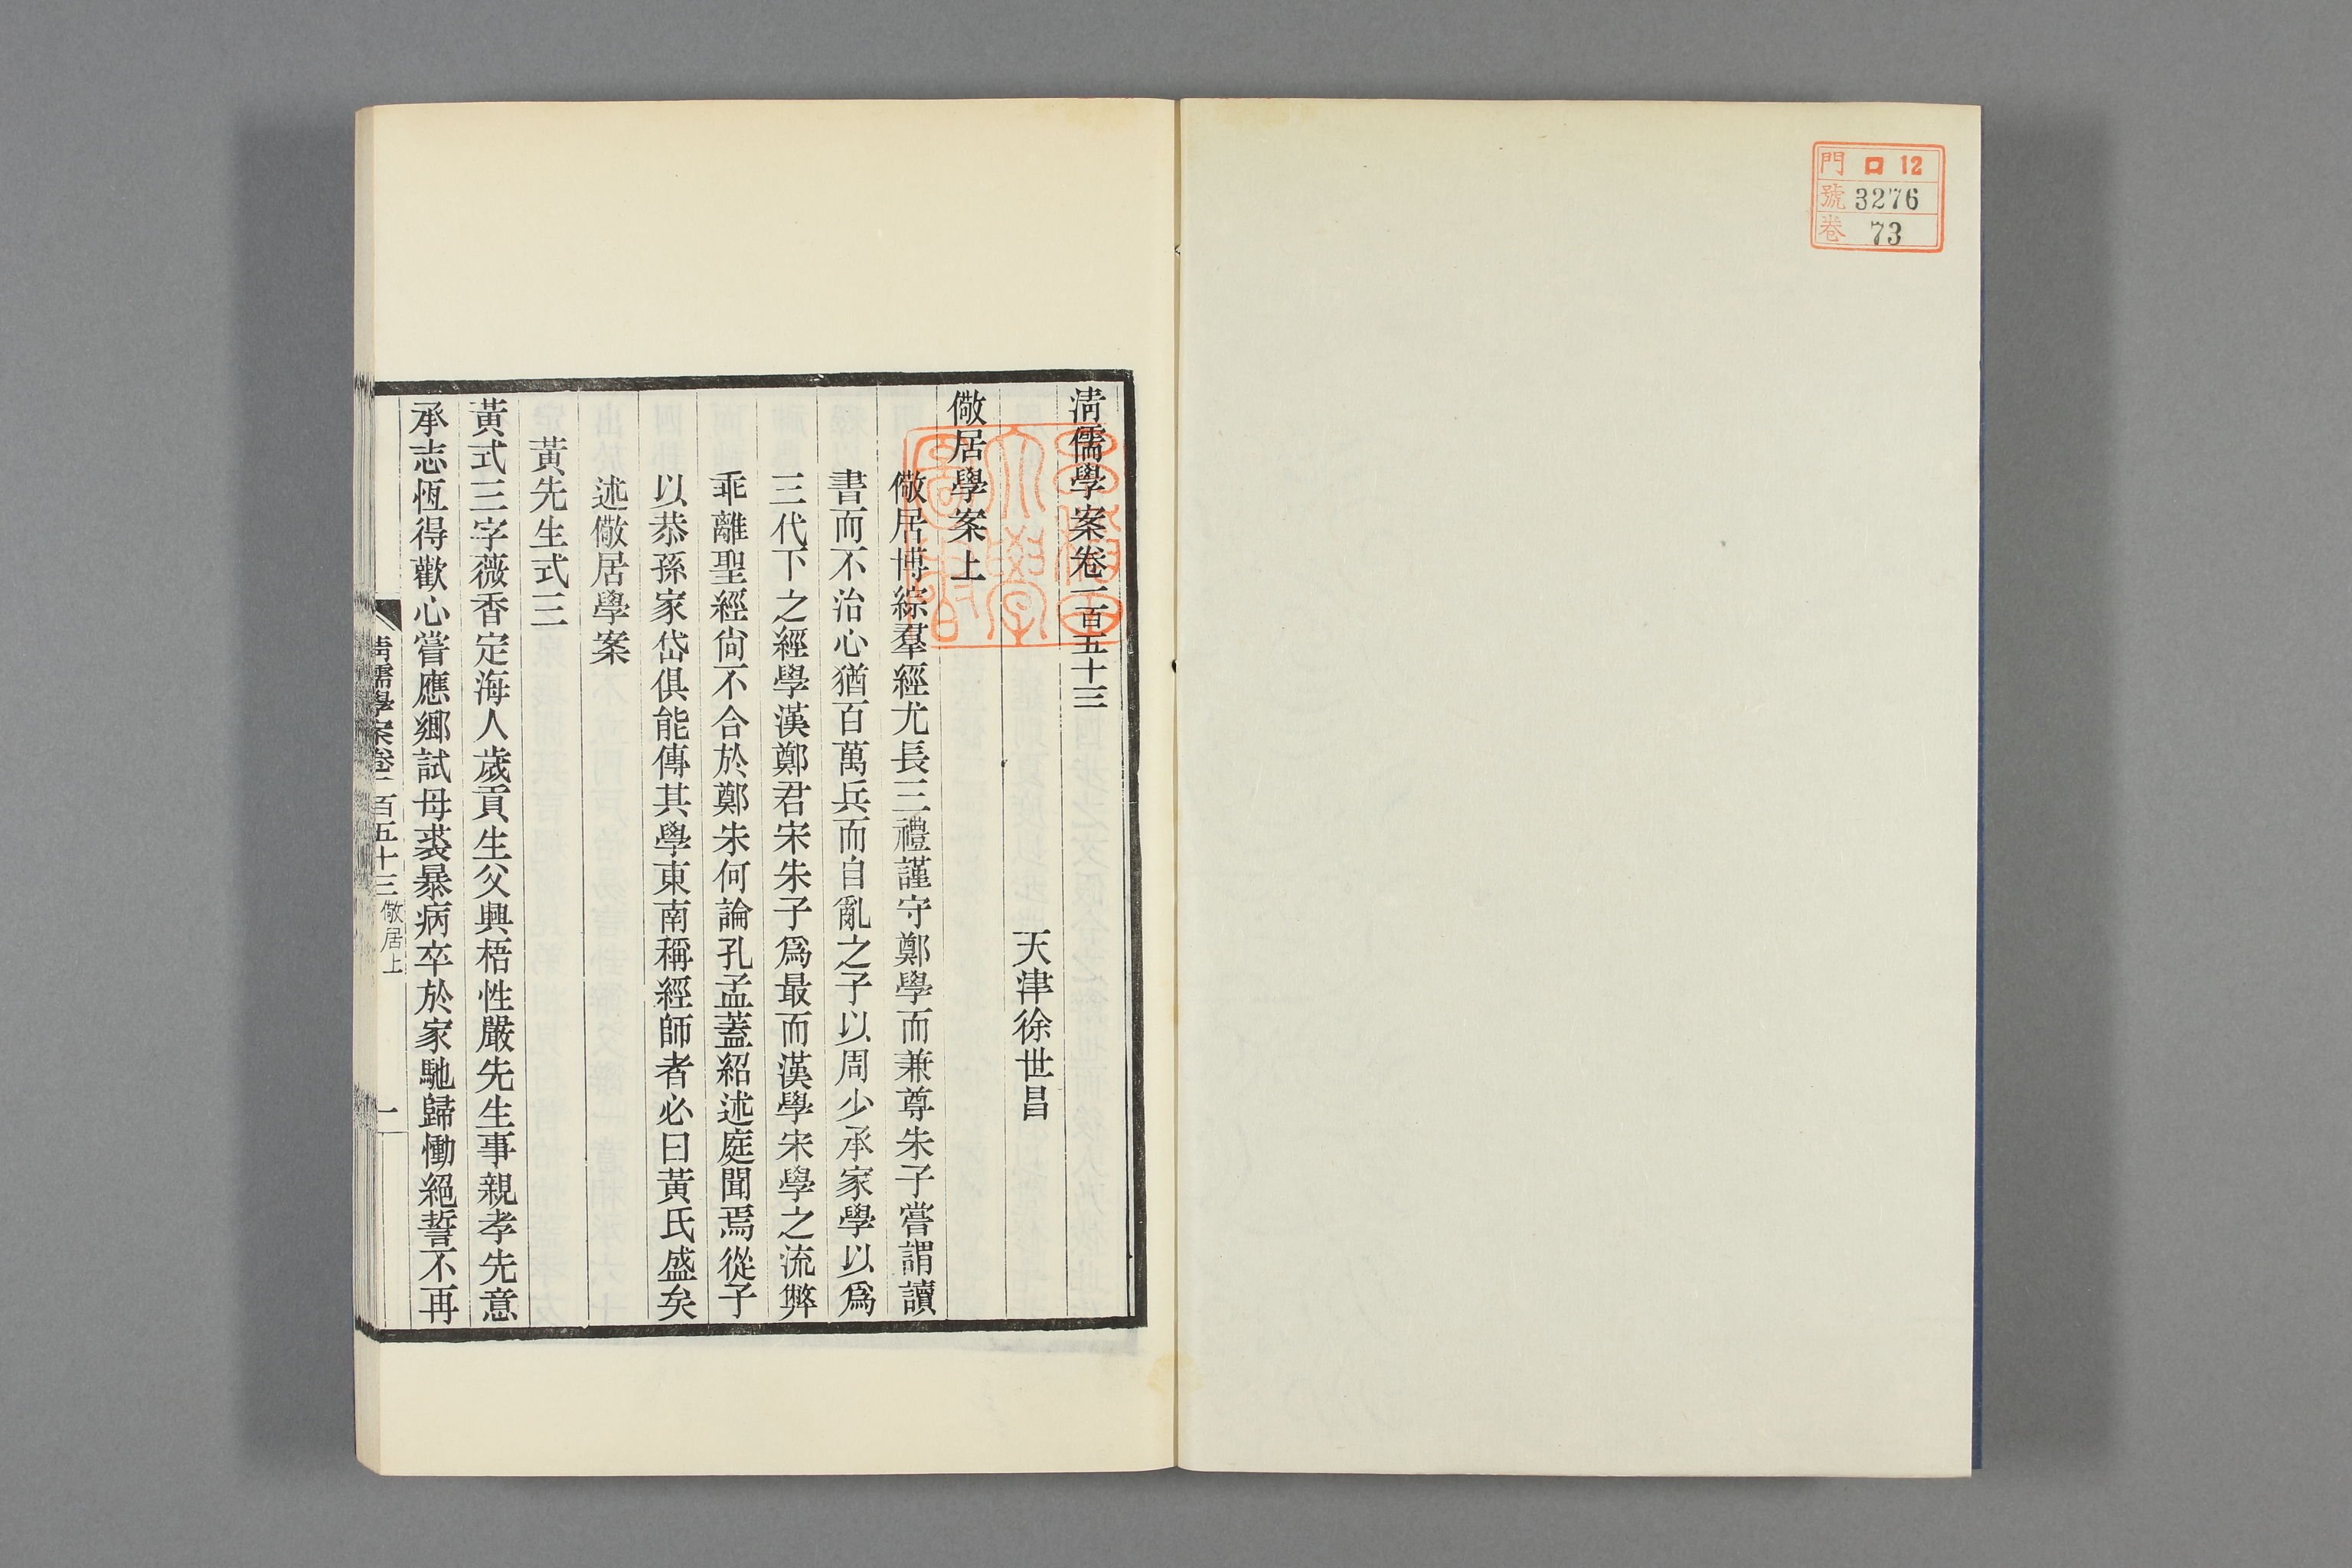 門 ロ 12
號 3276
卷 73
清儒學案卷一百五十三
天津徐世昌
儆居學案上
儆居博綜羣經尤長三禮謹守鄭學而兼尊朱子嘗謂讀
書而不治心猶百萬兵而自亂之子以周少承家學以爲
三代下之經學漢鄭君宋朱子爲最而漢學宋學之流弊
乖離聖經尙不合於鄭朱何論孔孟蓋紹述庭聞焉從子
以恭孫家岱俱能傳其學東南稱經師者必曰黃氏盛矣
述儆居學案
黃先生式三
黃式三字薇香定海人歲貢生父興梧性嚴先生事親孝先意
承志恆得歡心嘗應鄉試母裘暴病卒於家馳歸慟絕誓不再
清儒學案卷一百五十三 儆居上
一